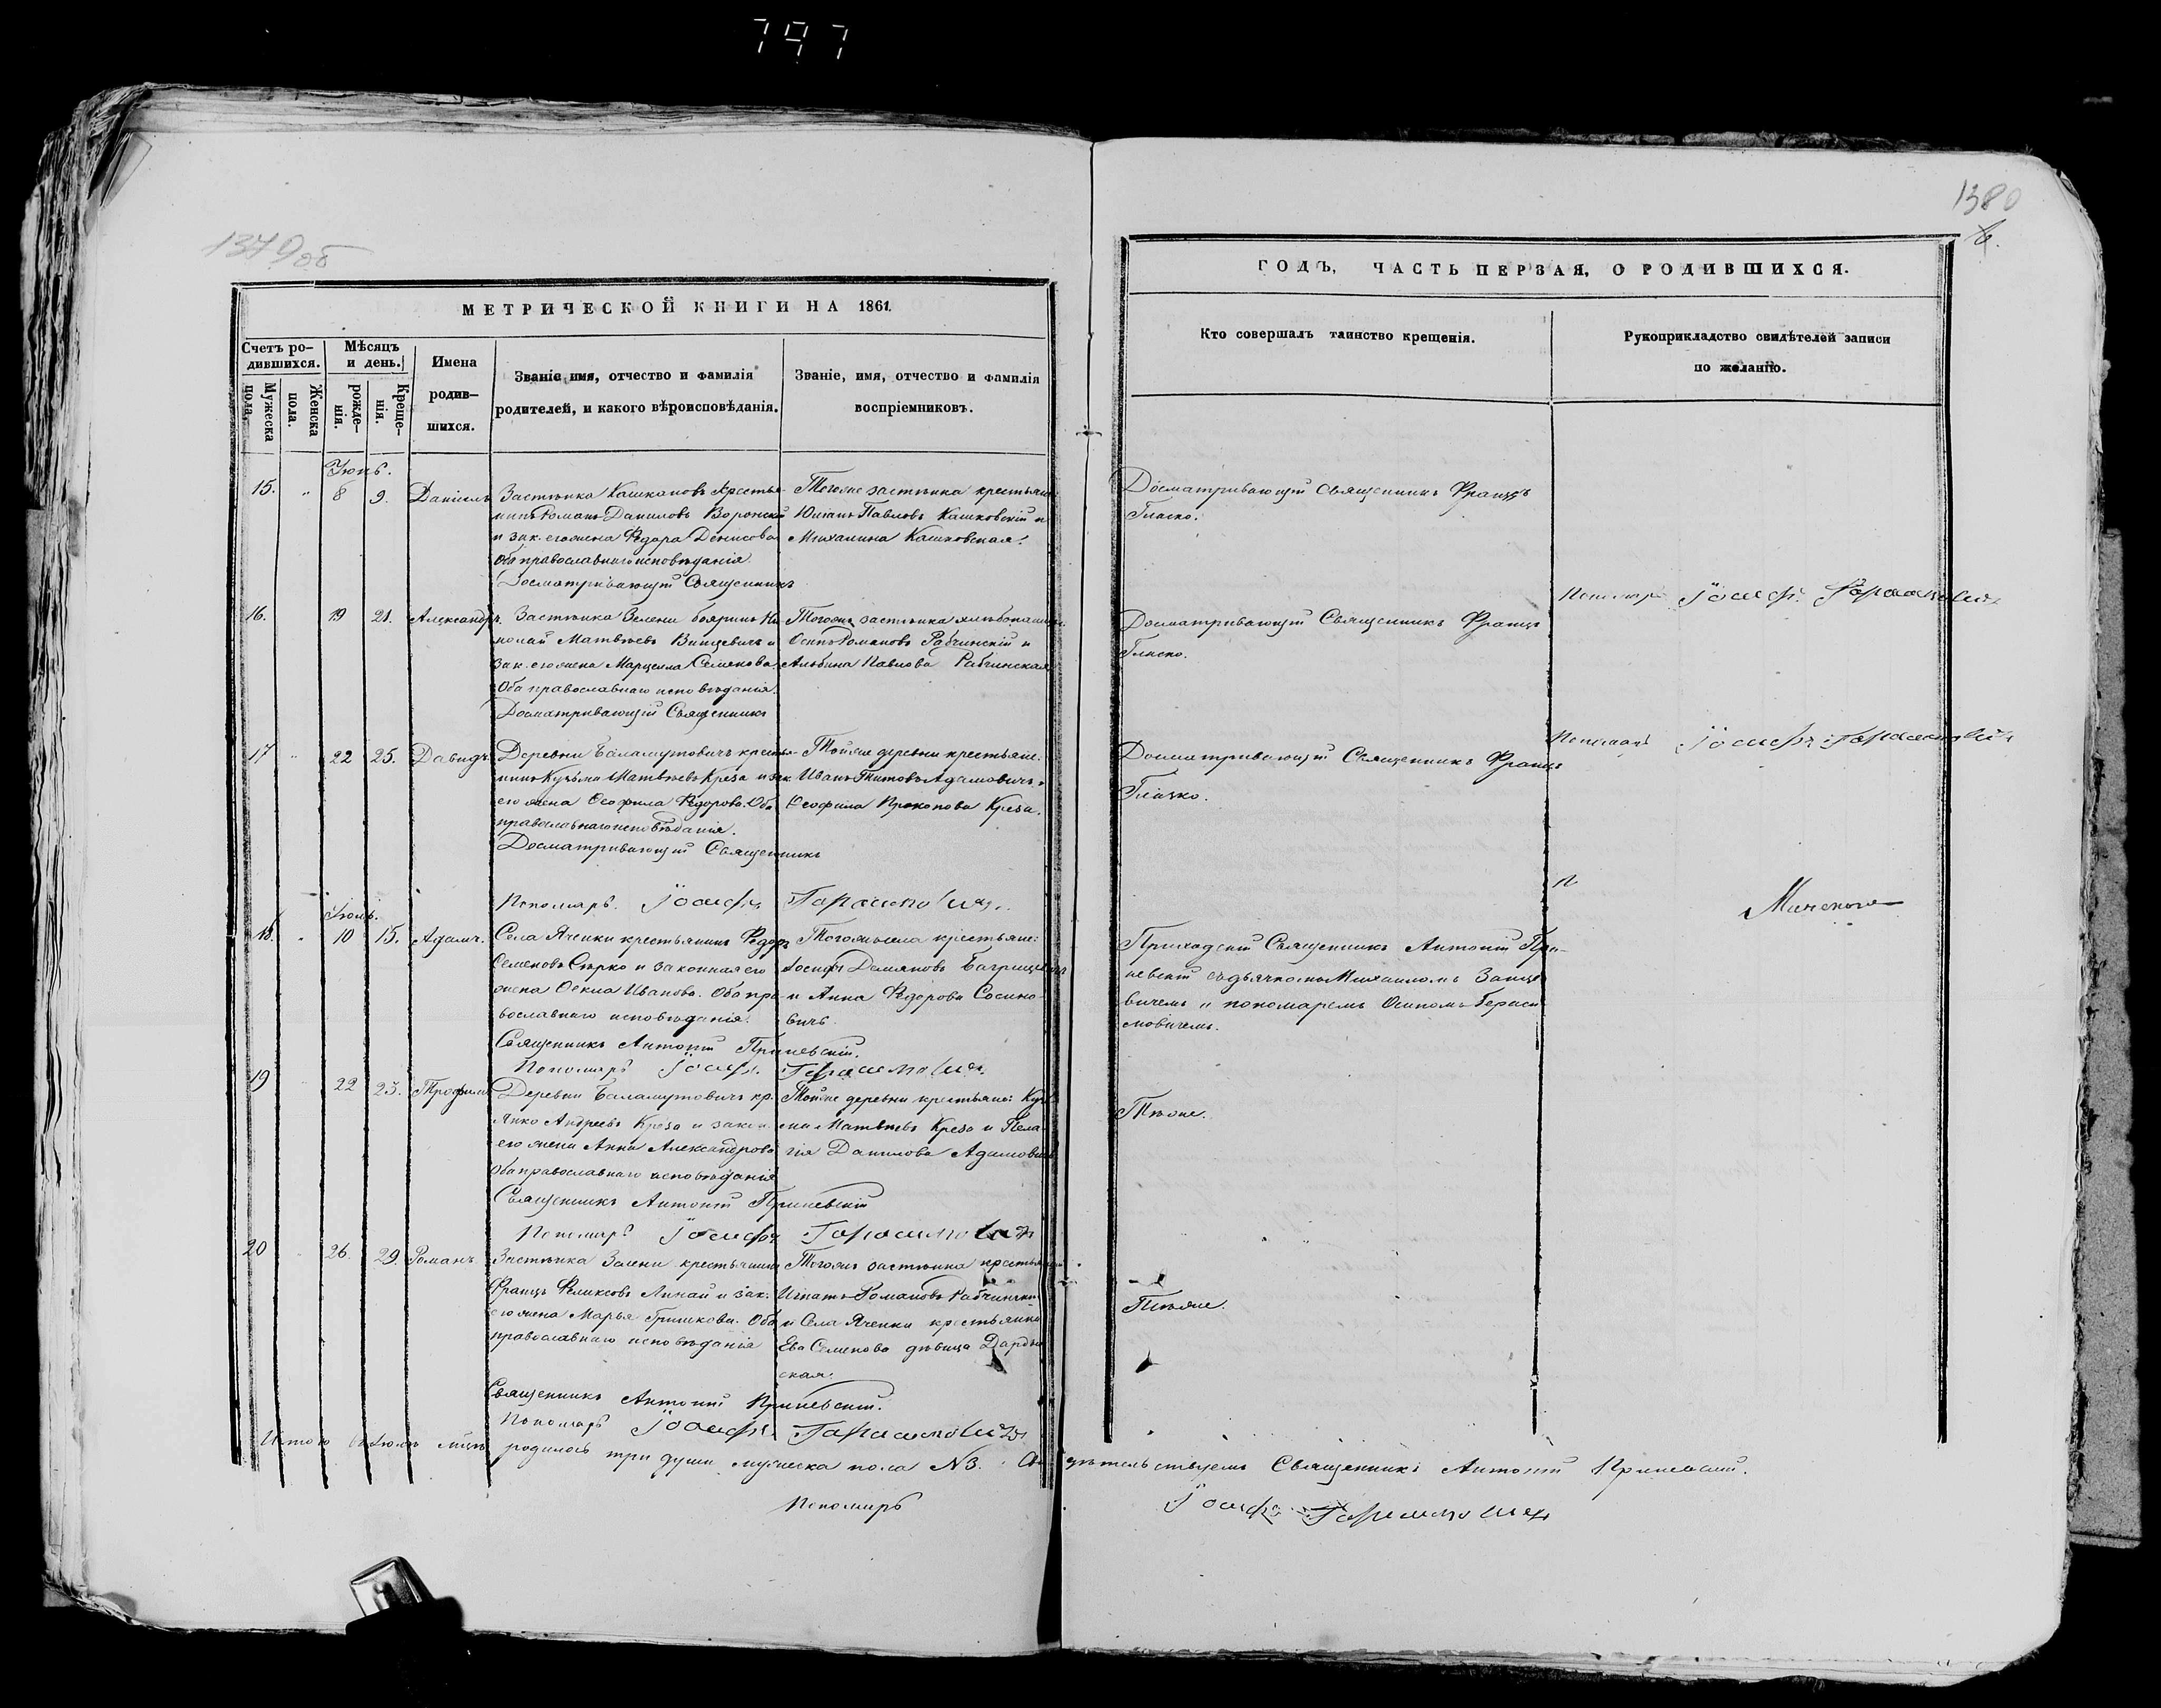 797
1379об
МЕТРИЧЕСКОЙ КНИГИ НА 1861.
Счетъ ро-
дившихся.
Мужеска
пола.
Женска
пола.
Мѣсяцъ
и день.
рожде-
нія.
Креще-
нія.
Имена
родив-
шихся.
Званіе имя, отчество и фамилія
родителей, и какого вѣроисповѣданія.
Званіе, имя, отчество и фамилія
воспріемниковъ.
Іюнь.
15. " 8 9. Даніилъ
Застѣнка Кашкановъ Крестья-
нинъ Романъ Даниловъ Воронскій
и зак. его жена Федора Денисова
Оба православнаго исповѣданія
Досматривающій Священникъ
Тогоже застѣнка крестьяне
Юліанъ Павловъ Кашковскій и
Михалина Кашковская.
16. 19 21. Александръ.
Застѣнка Зелени бояринъ Ни-
колай Матвѣевъ Винцевичъ и
Зак. его жена Марцелла Семенова
Оба православнаго исповѣданія.
Досматривающій Священникъ
Тогожъ застѣнка
Осипъ Романовъ Рабчинскій и
Альбина Павлова Рабчинская
17 " 22 25. Давидъ.
Деревни Баламутовичъ крестья-
нинъ Кузьма Матвѣевъ Креза и зак
его жена Ѳеофила Федорова. Оба
православнаго исповѣданія.
Досматривающій Священникъ
Тойже деревни крестьяне:
Иванъ Титовъ Адамовичъ и
Ѳеофила Прокопова Креза.
Пономарь Іосифъ Гарасимовичъ.
Іюль.
18. " 10 15. Адамъ.
Села Яченки крестьянинъ Федоръ
Семеновъ Сѣрко и законная его
жена Ѳекла Иванова. Оба пра
вославнаго исповѣданія.
Священникъ Антоній Приневскій.
Пономарь Іосифъ Гарасимовичъ.
Тогожъ села крестьяне:
Іосифъ Демяновъ
и Анна Федорова Сосино-
вичъ.
19 " 22 23. Трофимъ
Деревни Баламутовичъ кр.
Янко Андреевъ Креза и закон.
его жена Анна Александрова
Оба православнаго исповѣданія
Священникъ Антоній Приневскій
Пономарь Іосифъ Гарасимовичъ
Тойже деревни крестьяне: Кузь
ма Матвѣевъ Креза и Пела-
гія Данилова Адамовичъ
20 26. 29. Романъ.
Застѣнка Зелени крестьянинъ
Францъ Феликсовъ Линай и зак:
его жена Марья Гришкова. Оба
православнаго исповѣданія
Тогожъ застѣнка крестьянинъ
Игнатъ Романовъ Рабчинскій
и Села Яченки крестьянка
Ева Семенова дѣвица
ская.
Священникъ Антоній Приневскій.
Пономарь Іосифъ Гарасимовичъ
Итого въ Іюлѣ мѣсяцѣ родилось три души мужеска пола N3. Свидѣтельствуемъ Священникъ Антоній Приневскій.
Пономарь Іосифъ Гарасимовичъ
1380
6.
ГОДЪ, ЧАСТЬ ПЕРВАЯ, О РОДИВШИХСЯ.
Кто совершалъ таинство крещенія.
Рукоприкладство свидѣтелей записи
по желанію.
Досматривающій Священникъ Францъ
Гласко.
Пономарь Іосифъ Гарасимовичъ
Досматривающій Священникъ Францъ
Гласко.
Пономарь Іосифъ Гарасимовичъ
Досматривающій Священникъ Францъ
Глазко.
Минскаго
Приходскій Священникъ Антоній При-
невскій съ дьячкомъ Михаиломъ Занце
вичемъ и пономаремъ Осипомъ Гераси
мовичемъ.
Тѣже.
Тѣже.